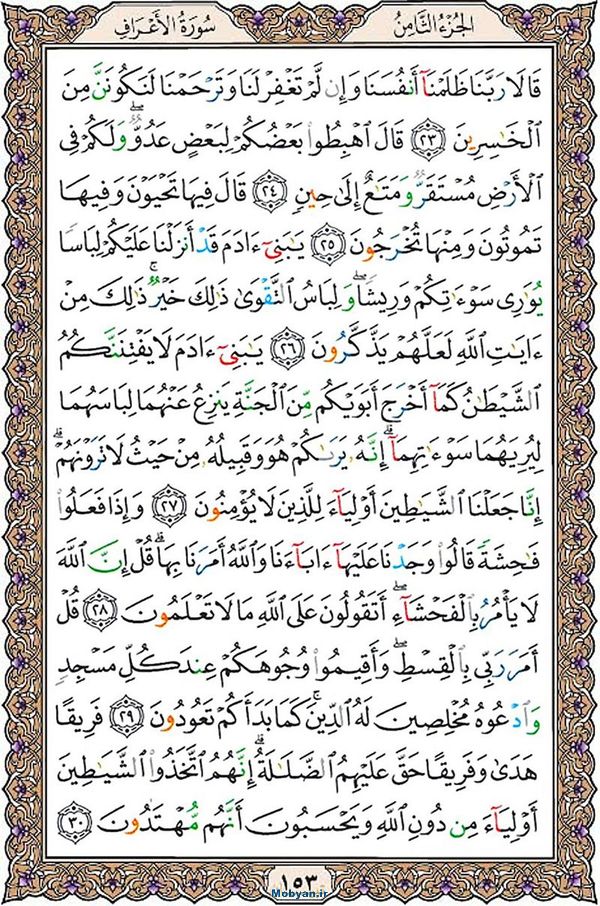 الجُزْءُ الثَّامِنُ
سُورَةُ الأَعْرَافِ
قَالَا رَبَّنَا ظَلَمْنَآ أَنفُسَنَا وَإِن لَّمْ تَغْفِرْ لَنَا وَتَرْحَمْنَا لَنَكُونَنَّ مِنَ
ٱلْخَٰسِرِينَ ٢٣ قَالَ ٱهْبِطُوا۟ بَعْضُكُمْ لِبَعْضٍ عَدُوٌّ ۖ وَلَكُمْ فِى
ٱلْأَرْضِ مُسْتَقَرٌّ وَمَتَٰعٌ إِلَىٰ حِينٍ ٢٤ قَالَ فِيهَا تَحْيَوْنَ وَفِيهَا
تَمُوتُونَ وَمِنْهَا تُخْرَجُونَ ٢٥ يَٰبَنِىٓ ءَادَمَ قَدْ أَنزَلْنَا عَلَيْكُمْ لِبَاسًا
يُوَٰرِى سَوْءَٰتِكُمْ وَرِيشًا ۖ وَلِبَاسُ ٱلتَّقْوَىٰ ذَٰلِكَ خَيْرٌ ۚ ذَٰلِكَ مِنْ
ءَايَٰتِ ٱللَّهِ لَعَلَّهُمْ يَذَّكَّرُونَ ٢٦ يَٰبَنِىٓ ءَادَمَ لَا يَفْتِنَنَّكُمُ
ٱلشَّيْطَٰنُ كَمَآ أَخْرَجَ أَبَوَيْكُم مِّنَ ٱلْجَنَّةِ يَنزِعُ عَنْهُمَا لِبَاسَهُمَا
لِيُرِيَهُمَا سَوْءَٰتِهِمَآ ۗ إِنَّهُۥ يَرَىٰكُمْ هُوَ وَقَبِيلُهُۥ مِنْ حَيْثُ لَا تَرَوْنَهُمْ ۗ
إِنَّا جَعَلْنَا ٱلشَّيَٰطِينَ أَوْلِيَآءَ لِلَّذِينَ لَا يُؤْمِنُونَ ٢٧ وَإِذَا فَعَلُوا۟
فَٰحِشَةً قَالُوا۟ وَجَدْنَا عَلَيْهَآ ءَابَآءَنَا وَٱللَّهُ أَمَرَنَا بِهَا ۗ قُلْ إِنَّ ٱللَّهَ
لَا يَأْمُرُ بِٱلْفَحْشَآءِ ۖ أَتَقُولُونَ عَلَى ٱللَّهِ مَا لَا تَعْلَمُونَ ٢٨ قُلْ
أَمَرَ رَبِّى بِٱلْقِسْطِ ۖ وَأَقِيمُوا۟ وُجُوهَكُمْ عِندَ كُلِّ مَسْجِدٍ
وَٱدْعُوهُ مُخْلِصِينَ لَهُ ٱلدِّينَ ۚ كَمَا بَدَأَكُمْ تَعُودُونَ ٢٩ فَرِيقًا
هَدَىٰ وَفَرِيقًا حَقَّ عَلَيْهِمُ ٱلضَّلَٰلَةُ ۗ إِنَّهُمُ ٱتَّخَذُوا۟ ٱلشَّيَٰطِينَ
أَوْلِيَآءَ مِن دُونِ ٱللَّهِ وَيَحْسَبُونَ أَنَّهُم مُّهْتَدُونَ ٣٠
١٥٣
Mobyan.ir